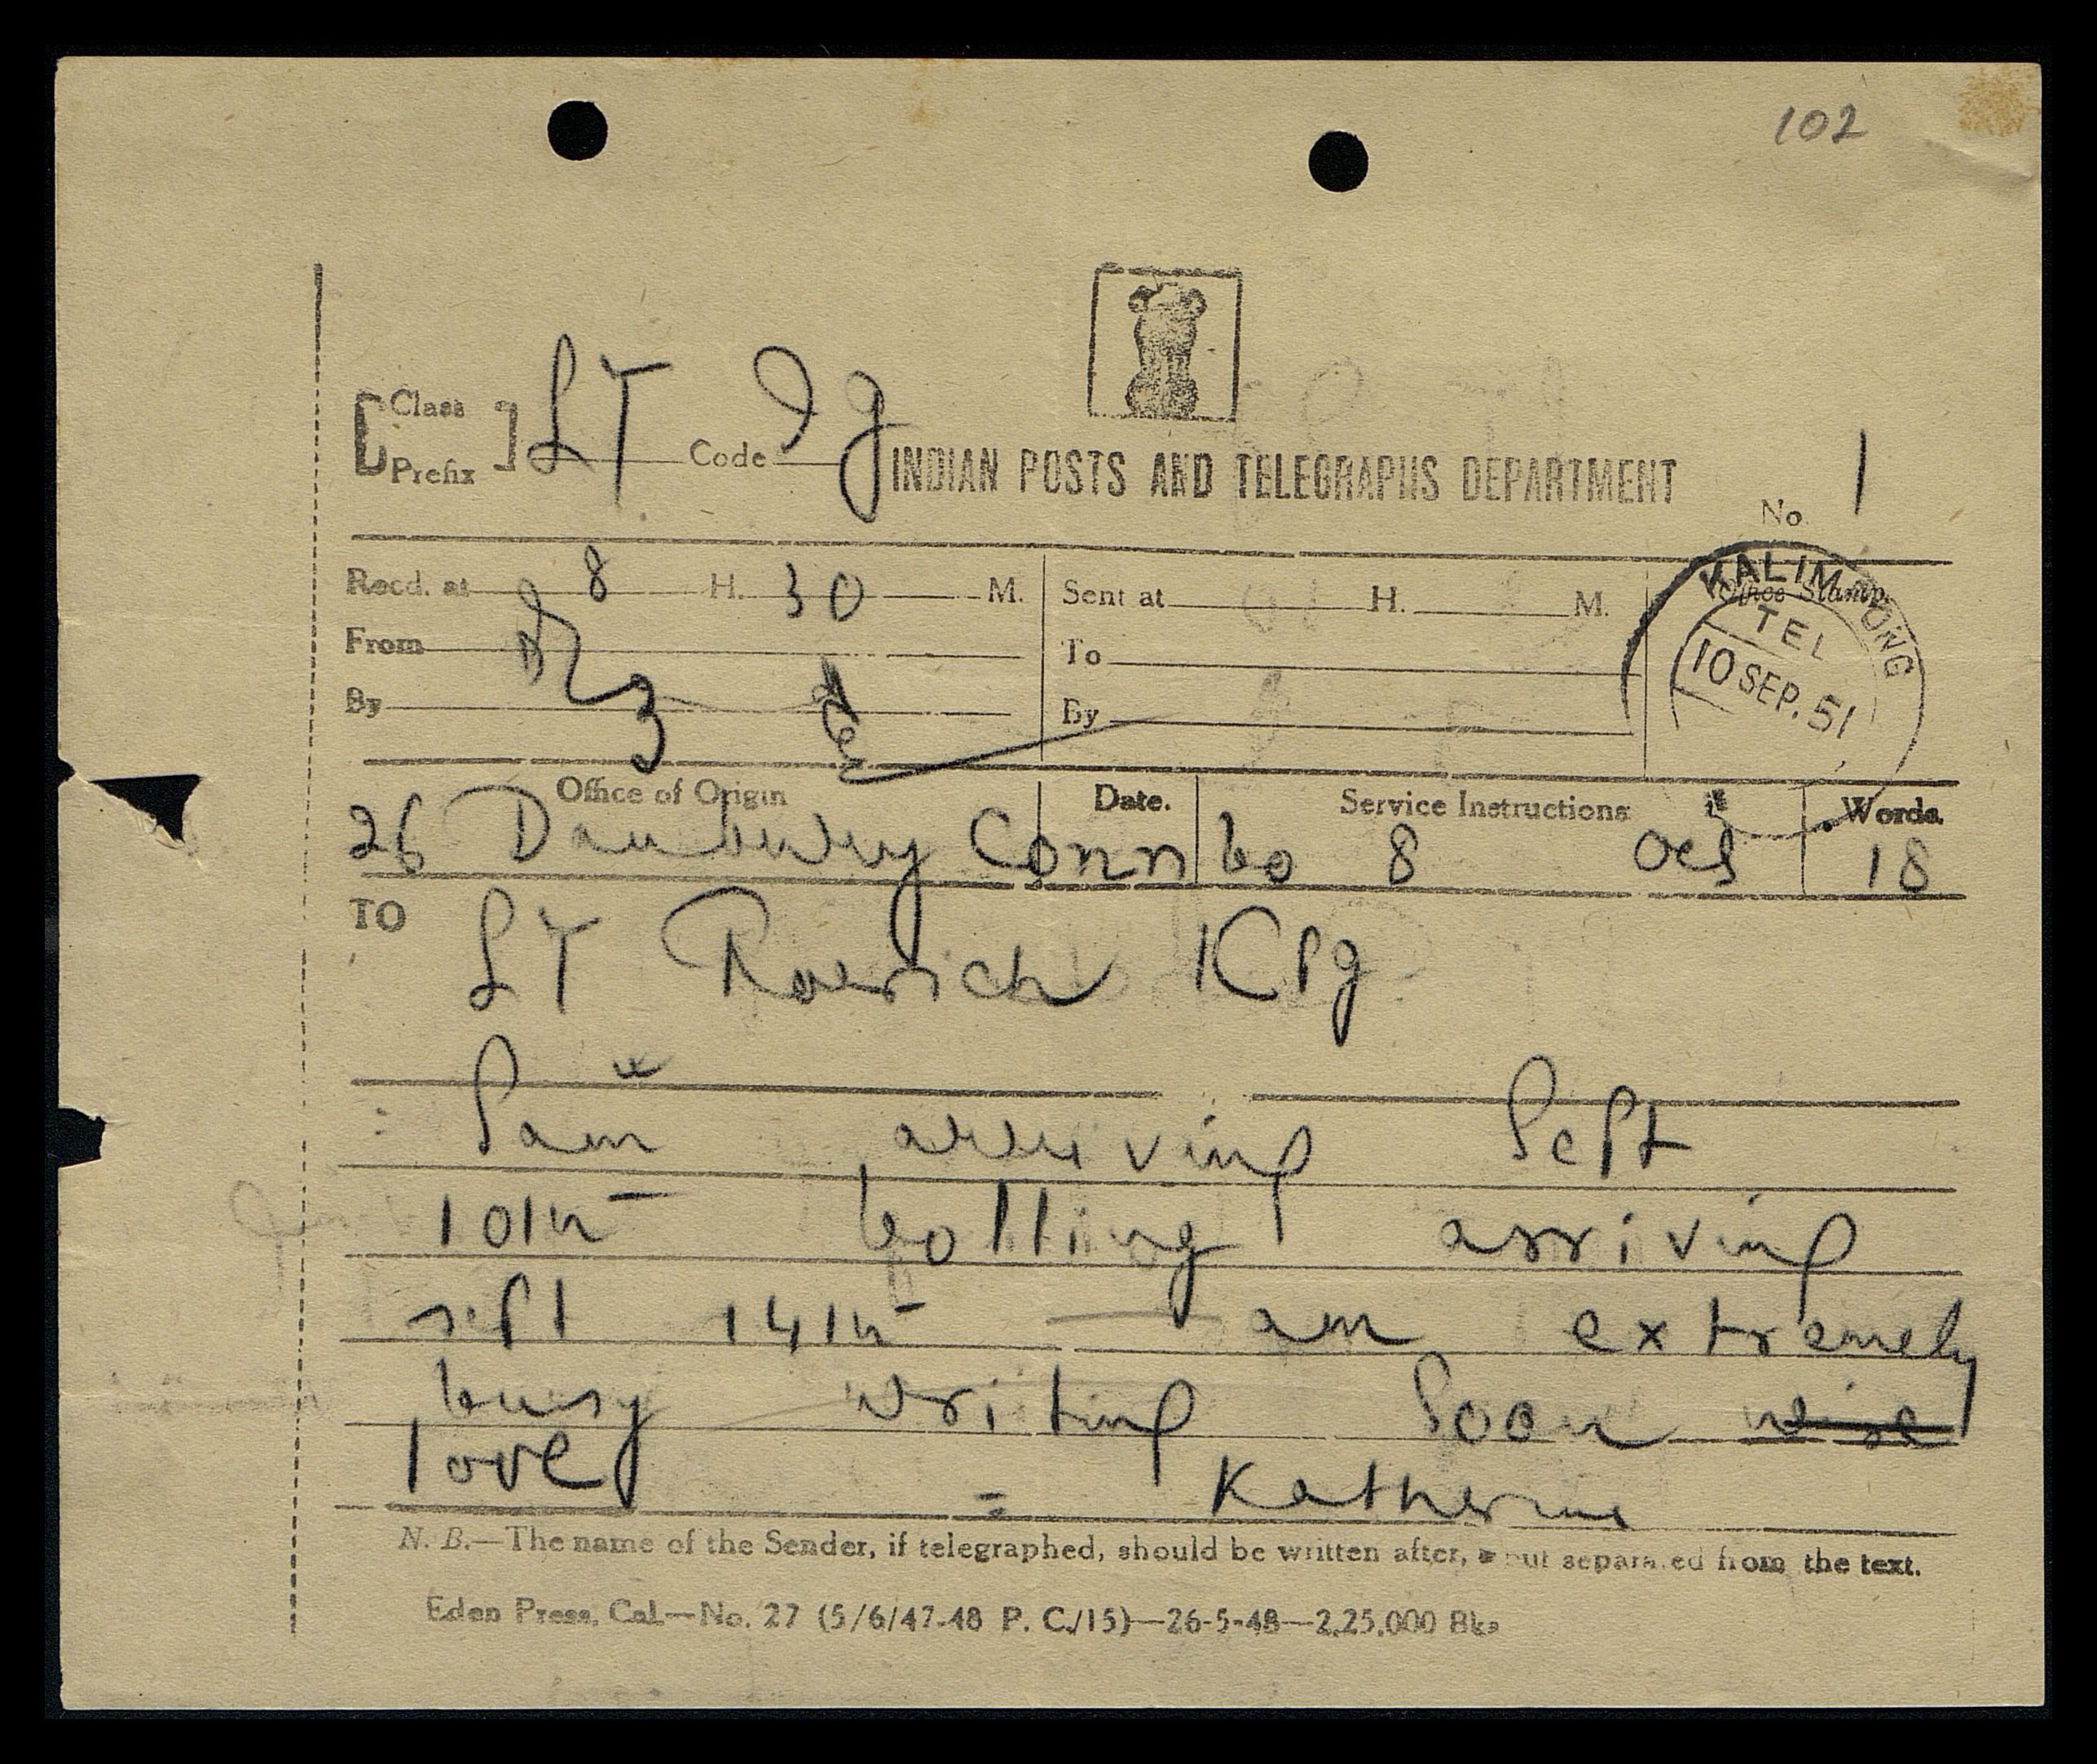 102
Class LT Code Ig
Prefix
INDIAN POSTS AND TELEGRAPHS DEPARTMENT
No 1
Recd. at 8 H. 30 M. Sent at H. M. Office Stamp.
From To
By By
KALIMPONG
TEL
10 SEP. 51
Office of Origin Date. Service Instructions Words.
26 Danbury Conn 60 8 18
TO LT Roerich Kpg
Sam arriving Sept
10th bolling arriving
sept 14th am extremely
busy writing Soon
love = Katherine
N. B.—The name of the Sender, if telegraphed, should be written after, but separated from the text.
Eden Press, Cal.—No. 27 (5/6/47-48 P. C./15)—26-5-48—2,25,000 Bks